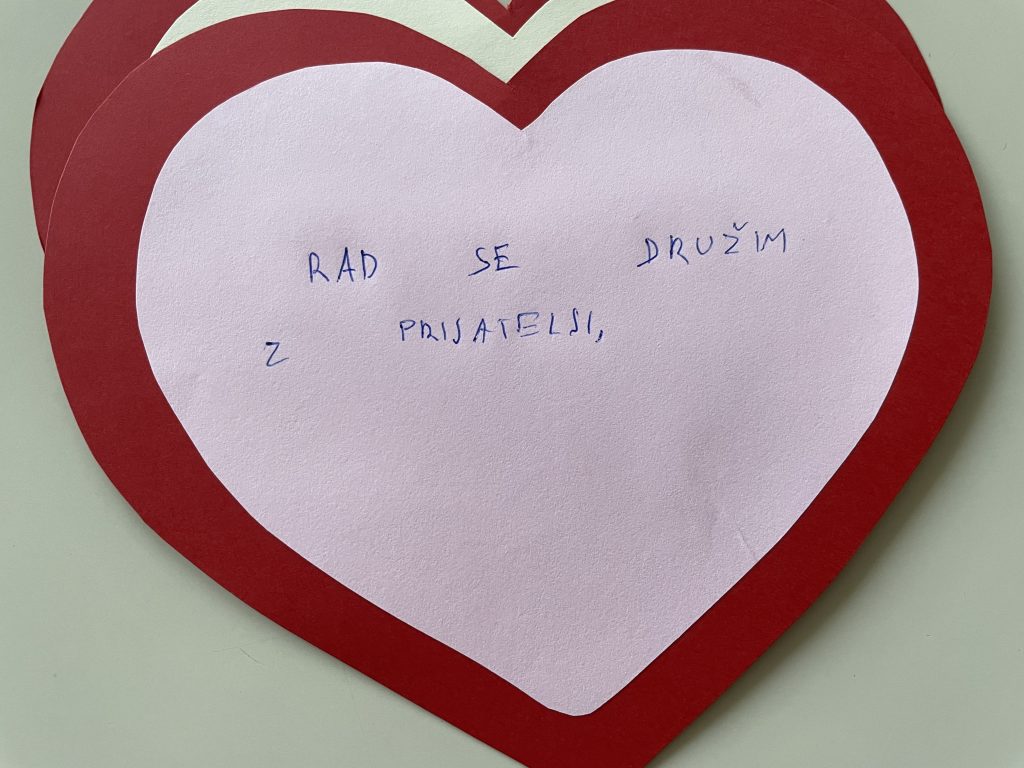 RAD SE DRUŽIM
Z PRIJATELJI,